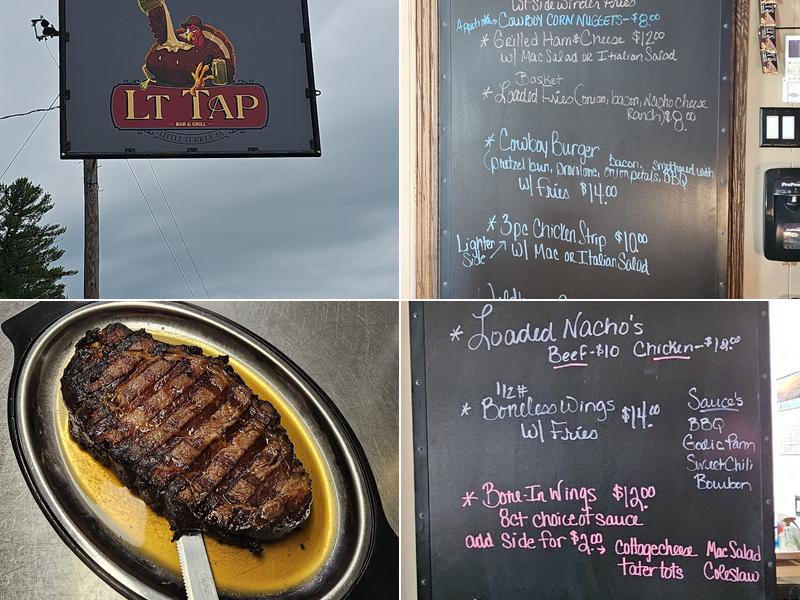 LT TAP
BAR & GRILL
LITTLE TURKEY, IA
w/ Sidewinder Fries
Appetizer Cowboy Corn Nuggets-$8.00
* Grilled Ham & Cheese $12.00
w/ Mac Salad or Italian Salad
Basket
* Loaded Fries (onion, bacon, Nacho Cheese
Ranch) $8.00
* Cowboy Burger
(pretzel bun, provlone, bacon, onion petals, smothered with BBQ
w/ Fries $14.00
* 3pc Chicken Strip $10.00
Lighter Side w/ Mac or Italian Salad
* Loaded Nacho's
Beef-$10 Chicken-$12.00
1/2#
* Boneless Wings $14.00
w/ Fries
Sauce's
BBQ
Garlic Parm
Sweet Chili
Bourbon
* Bone-In Wings $12.00
8ct choice of sauce
add side for $2.00 → cottage cheese Mac Salad
tater tots Coleslaw